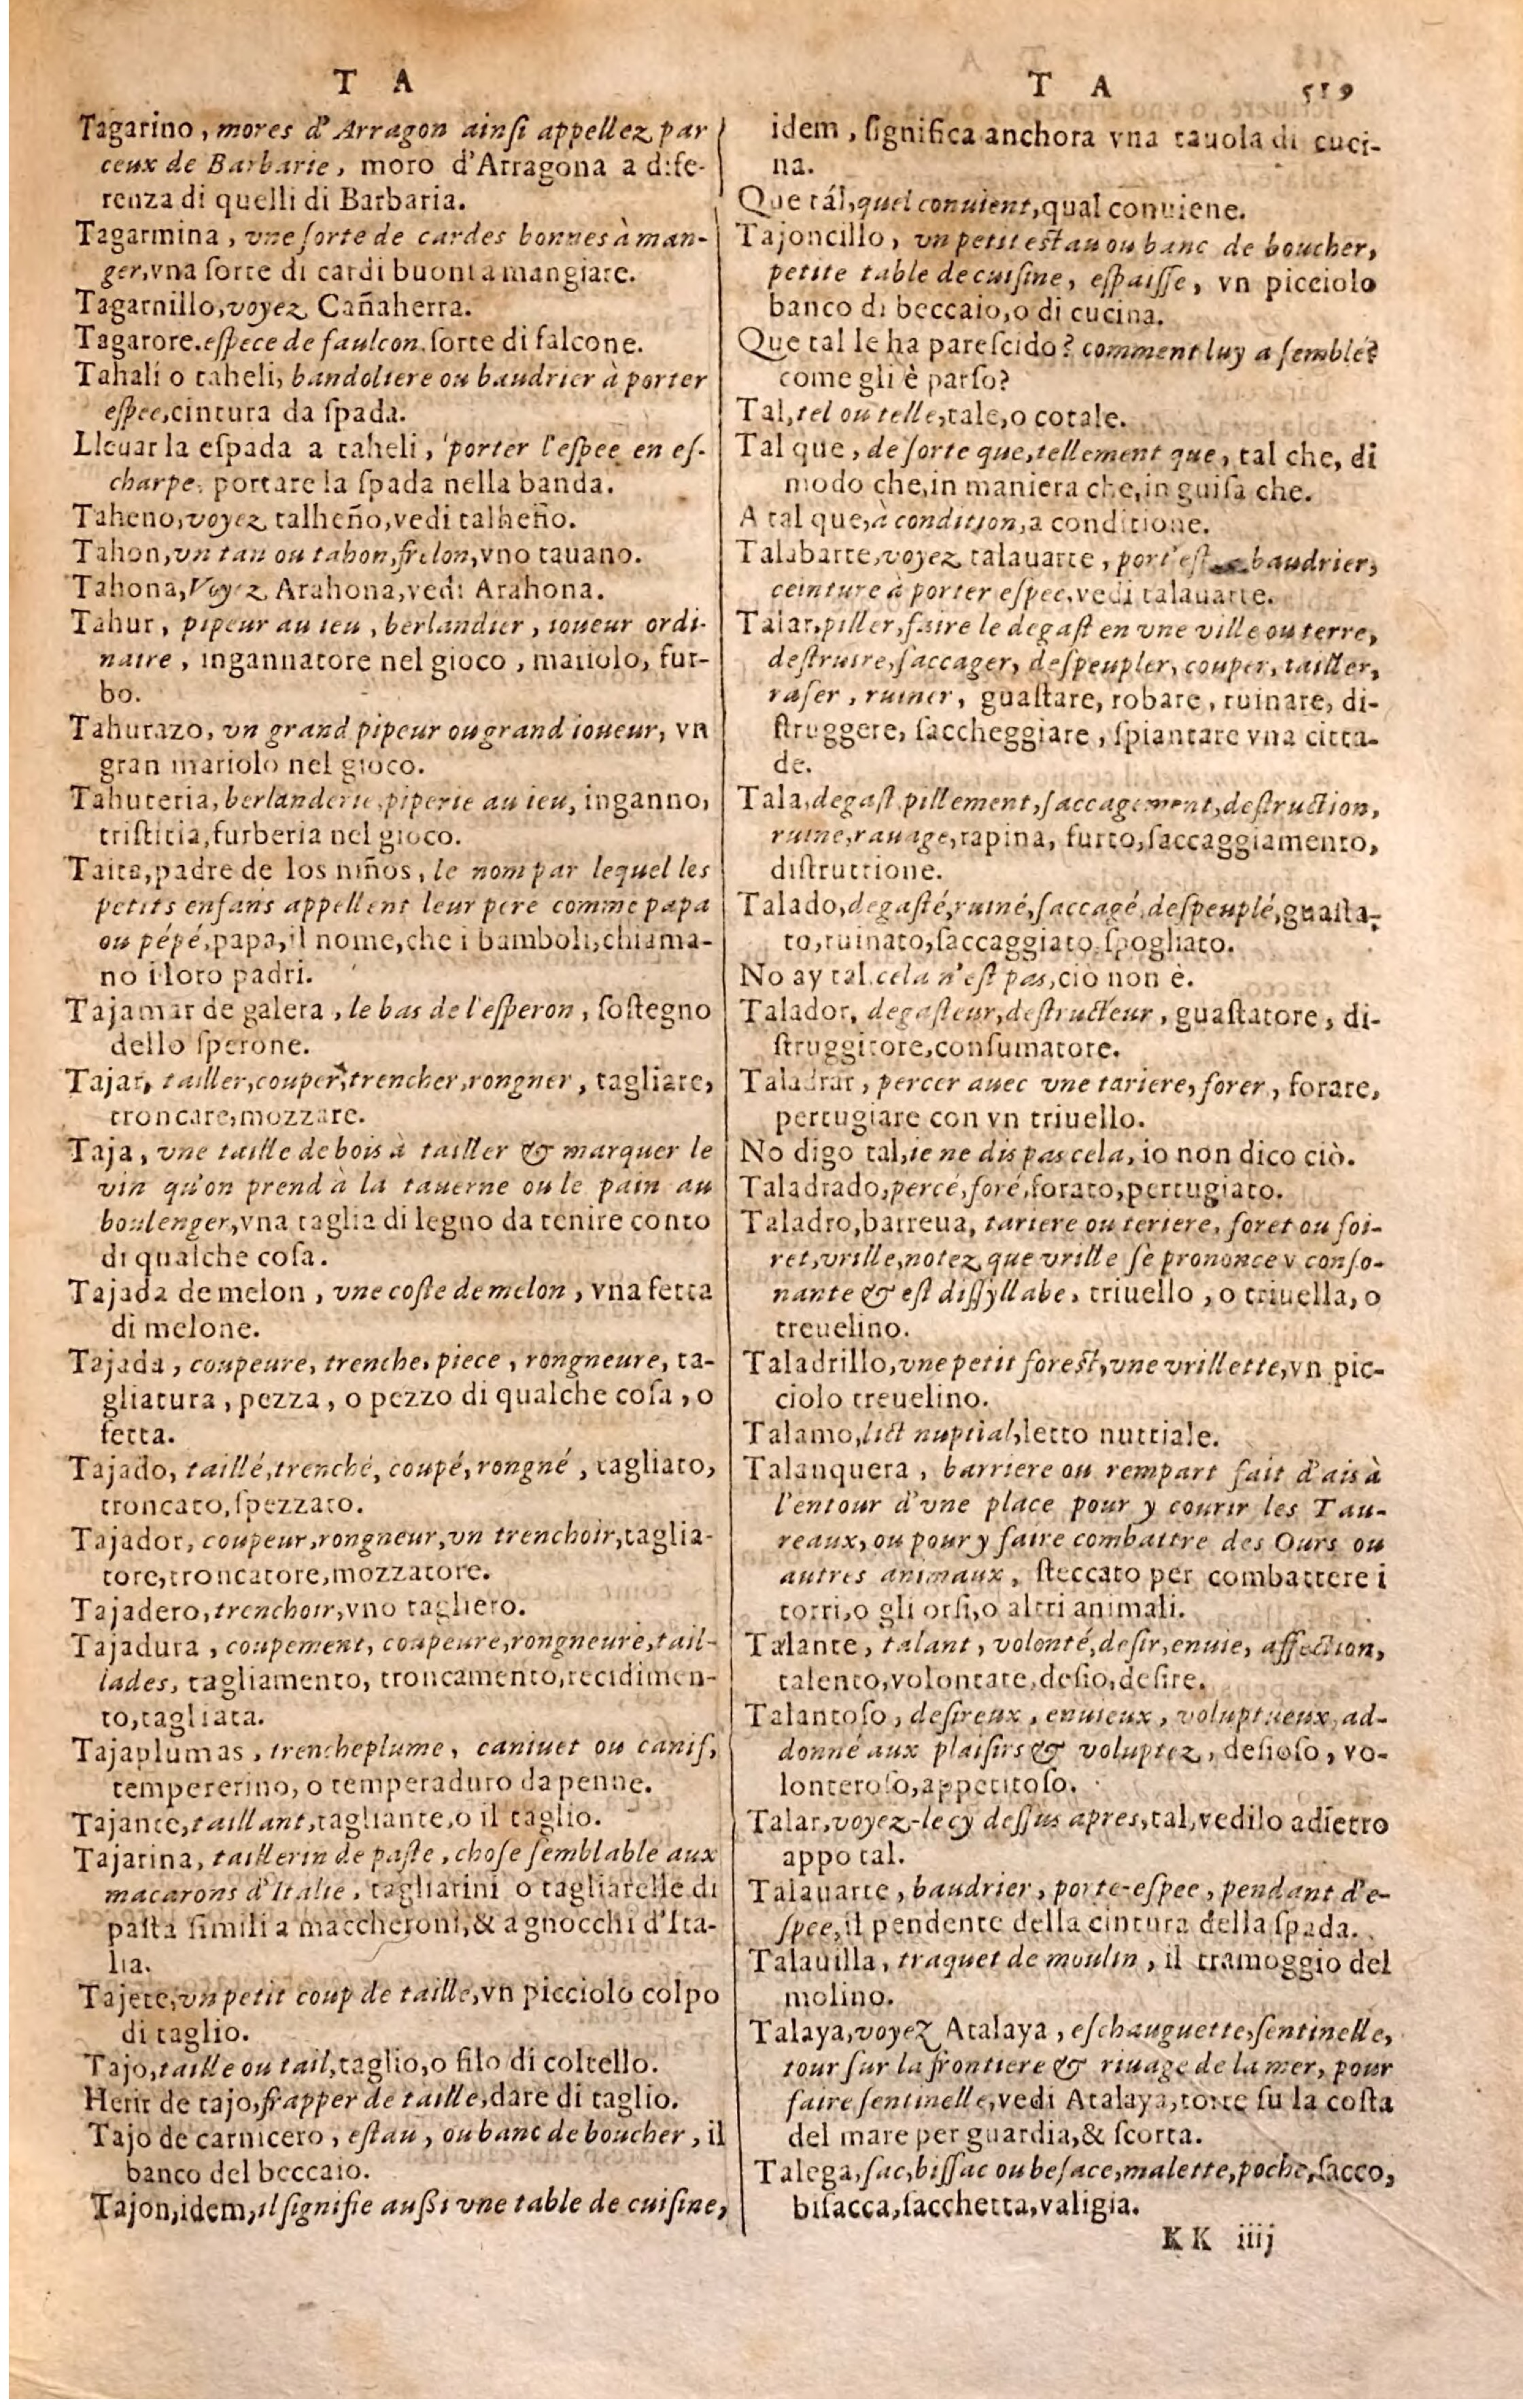 T A
Tagarino, mores d'Arragon ainſi appellez par
ceux de Barbarie, moro d'Arragona a dife-
renza di quelli di Barbaria.
Tagarmina, vne ſorte de cardes bonnes à man-
ger, vna ſorte di cardi buoni a mangiare.
Tagarnillo, voyez Cañaherra.
Tagarore. eſpece de faulcon. ſorte di falcone.
Tahali o taheli, bandoliere ou baudrier à porter
eſpee, cintura da ſpada.
Lleuar la eſpada a taheli, porter l'eſpee en eſ-
charpe. portare la ſpada nella banda.
Taheno, voyez talheño, vedi talheño.
Tahon, vn tau ou tahon, frelon, vno tauano.
Tahona, Voyez Arahona, vedi Arahona.
Tahur, pipeur au ieu, berlandier, ioueur ordi-
naire, ingannatore nel gioco, mariolo, fur-
bo.
Tahurazo, vn grand pipeur ou grand ioueur, vn
gran mariolo nel gioco.
Tahureria, berlanderie, piperie au ieu, inganno,
triſtitia, furberia nel gioco.
Taita, padre de los niños, le nom par lequel les
petits enfans appellent leur pere comme papa
ou pépé, papa, il nome, che i bamboli, chiama-
no i loro padri.
Tajamar de galera, le bas de l'eſperon, ſoſtegno
dello ſperone.
Tajar, tailler, couper, trencher, rongner, tagliare,
troncare, mozzare.
Taja, vne taille de bois à tailler & marquer le
vin qu'on prend à la tauerne ou le pain au
boulenger, vna taglia di legno da tenire conto
di qualche coſa.
Tajada de melon, vne coſte de melon, vna fetta
di melone.
Tajada, coupeure, trenche, piece, rongneure, ta-
gliatura, pezza, o pezzo di qualche coſa, o
fetta.
Tajado, taillé, trenché, coupé, rongné, tagliato,
troncato, ſpezzato.
Tajador, coupeur, rongneur, vn trenchoir, taglia-
tore, troncatore, mozzatore.
Tajadero, trenchoir, vno tagliero.
Tajadura, coupement, coupeure, rongneure, tail-
lades, tagliamento, troncamento, recidimen-
to, tagliata.
Tajaplumas, trencheplume, caniuet ou canif,
tempererino, o temperaduro da penne.
Tajante, taillant, tagliante, o il taglio.
Tajarina, taillerin de paſte, choſe ſemblable aux
macarons d'Italie, tagliarini o tagliarelle di
paſta ſimili a maccheroni, & a gnocchi d'Ita-
lia.
Tajete, vn petit coup de taille, vn picciolo colpo
di taglio.
Tajo, taille ou tail, taglio, o filo di coltello.
Herir de tajo, frapper de taille, dare di taglio.
Tajo de carnicero, eſtau, ou banc de boucher, il
banco del beccaio.
Tajon, idem, il ſignifie auſſi vne table de cuiſine,
T A 519
idem, ſignifica anchora vna tauola di cuci-
na.
Que tál, quel conuient, qual conuiene.
Tajoncillo, vn petit eſtau ou banc de boucher,
petite table de cuiſine, eſpaiſſe, vn picciolo
banco di beccaio, o di cucina.
Que tal le ha pareſcido? comment luy a ſemblé?
come gli è parſo?
Tal, tel ou telle, tale, o cotale.
Tal que, de ſorte que, tellement que, tal che, di
modo che, in maniera che, in guiſa che.
A tal que, à condition, a conditione.
Talabarte, voyez talauarte, baudrier,
ceinture à porter eſpee, vedi talauarte.
Talar, piller, faire le degaſt en vne ville ou terre,
deſtruire, ſaccager, deſpeupler, couper, tailler,
raſer, ruiner, guaſtare, robare, ruinare, di-
ſtruggere, ſaccheggiare, ſpiantare vna citta-
de.
Tala, degaſt, pillement, ſaccagement, deſtruction,
ruine, rauage, rapina, furto, ſaccaggiamento,
diſtruttione.
Talado, degaſté, ruiné, ſaccagé, deſpeuplé, guaſta-
to, ruinato, ſaccaggiato, ſpogliato.
No ay tal. cela n'eſt pas, ciò non è.
Talador, degaſteur, deſtructeur, guaſtatore, di-
ſtruggitore, conſumatore.
Taladrar, percer auec vne tariere, forer, forare,
pertugiare con vn triuello.
No digo tal, ie ne dis pas cela, io non dico ciò.
Taladrado, percé, foré, forato, pertugiato.
Taladro, barreua, tariere ou teriere, foret ou foi-
ret, vrille, notez que vrille ſe prononce v conſo-
nante & eſt diſſyllabe, triuello, o triuella, o
treuelino.
Taladrillo, vne petit foreſt, vne vrillette, vn pic-
ciolo treuelino.
Talamo, lict nuptial, letto nuttiale.
Talanquera, barriere ou rempart fait d'ais à
l'entour d'vne place pour y courir les Tau-
reaux, ou pour y faire combattre des Ours ou
autres animaux, ſteccato per combattere i
torri, o gli orſi, o altri animali.
Talante, talant, volonté, deſir, enuie, affection,
talento, volontate, deſio, deſire.
Talantoſo, deſireux, enuieux, voluptueux, ad-
donné aux plaiſirs & voluptez, deſioſo, vo-
lonteroſo, appetitoſo.
Talar, voyez-le cy deſſus apres, tal, vedilo adietro
appo tal.
Talauarte, baudrier, porte-eſpee, pendant d'e-
ſpee, il pendente della cintura della ſpada.
Talauilla, traquet de moulin, il tramoggio del
molino.
Talaya, voyez Atalaya, eſchauguette, ſentinelle,
tour ſur la frontiere & riuage de la mer, pour
faire ſentinelle, vedi Atalaya, torre ſu la coſta
del mare per guardia, & ſcorta.
Talega, ſac, biſſac ou beſace, malette, poche, ſacco,
biſacca, ſacchetta, valigia.
KK iiij